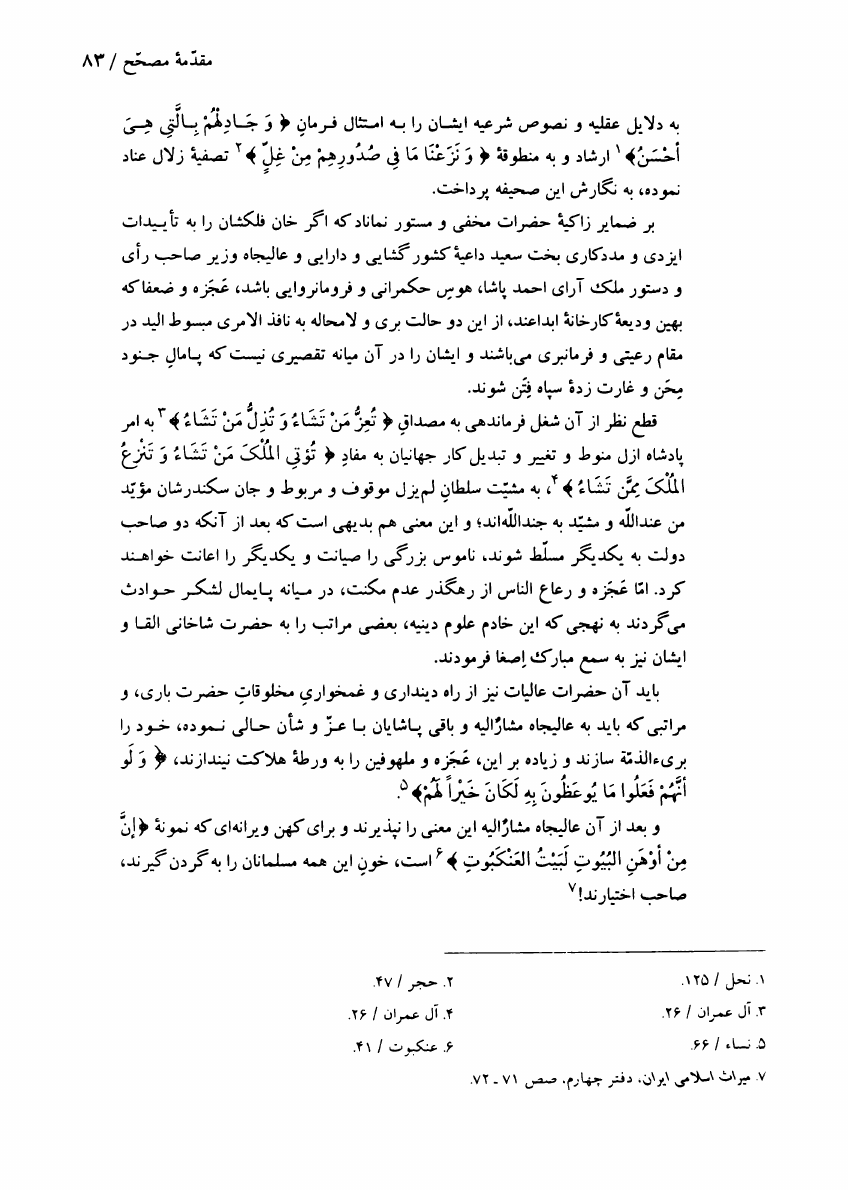 مقدّمهٔ مصحّح / ۸۳
به دلایل عقلیه و نصوص شرعیه ایشان را به امتثال فرمانِ ﴿ وَ جَادِلْهُمْ بِالَّتِی هِیَ
أَحْسَنُ﴾۱ ارشاد و به منطوقهٔ ﴿ وَ نَزَعْنَا مَا فِی صُدُورِهِمْ مِنْ غِلٍّ ﴾۲ تصفیهٔ زلال عناد
نموده، به نگارش این صحیفه پرداخت.
بر ضمایر زاکیهٔ حضرات مخفی و مستور نماناد که اگر خان فلکشان را به تأییدات
ایزدی و مددکاری بخت سعید داعیهٔ کشورگشایی و دارایی و عالیجاه وزیر صاحب رأی
و دستور ملک آرای احمد پاشا، هوسِ حکمرانی و فرومانروایی باشد، عَجَزه و ضعفا که
بهین ودیعهٔ کارخانهٔ ابداعند، از این دو حالت بری و لامحاله به نافذ الامری مبسوط الید در
مقام رعیتی و فرمانبری می‌باشند و ایشان را در آن میانه تقصیری نیست که پامالِ جنود
مِحَن و غارت زدهٔ سپاه فِتَن شوند.
قطع نظر از آن شغل فرماندهی به مصداقِ ﴿ تُعِزُّ مَنْ تَشَاءُ وَ تُذِلُّ مَنْ تَشَاءُ ﴾۳ به امر
پادشاه ازل منوط و تغییر و تبدیل کار جهانیان به مفادِ ﴿ تُؤتِی المُلْکَ مَنْ تَشَاءُ وَ تَنْزِعُ
المُلْکَ مِمَّن تَشَاءُ ﴾۴، به مشیّت سلطانِ لم‌یزل موقوف و مربوط و جان سکندرشان مؤیّد
من عنداللّه و مشیّد به جنداللّه‌اند؛ و این معنی هم بدیهی است که بعد از آنکه دو صاحب
دولت به یکدیگر مسلّط شوند، ناموس بزرگی را صیانت و یکدیگر را اعانت خواهند
کرد. امّا عَجَزه و رعاع الناس از رهگذر عدم مکنت، در میانه پایمال لشکر حوادث
می‌گردند به نهجی که این خادم علوم دینیه، بعضی مراتب را به حضرت شاخانی القا و
ایشان نیز به سمع مبارک اِصغا فرمودند.
باید آن حضرات عالیات نیز از راه دینداری و غمخواریِ مخلوقاتِ حضرت باری، و
مراتبی که باید به عالیجاه مشارٌالیه و باقی پاشایان با عزّ و شأن حالی نموده، خود را
بریءالذمّة سازند و زیاده بر این، عَجَزه و ملهوفین را به ورطهٔ هلاکت نیندازند، ﴿ وَ لَو
أَنَّهُمْ فَعَلُوا مَا یُوعَظُونَ بِهِ لَکَانَ خَیْراً لَهُمْ﴾۵.
و بعد از آن عالیجاه مشارٌالیه این معنی را نپذیرند و برای کهن ویرانه‌ای که نمونهٔ ﴿إِنَّ
مِنْ أَوْهَنِ البُیُوتِ لَبَیْتُ العَنْکَبُوتِ ﴾۶ است، خونِ این همه مسلمانان را به گردن گیرند،
صاحب اختیارند!۷
۱. نحل / ۱۲۵. ۲. حجر / ۴۷.
۳. آل عمران / ۲۶. ۴. آل عمران / ۲۶.
۵. نساء / ۶۶. ۶. عنکبوت / ۴۱.
۷. میراث اسلامی ایران، دفتر چهارم، صص ۷۱ ـ ۷۲.